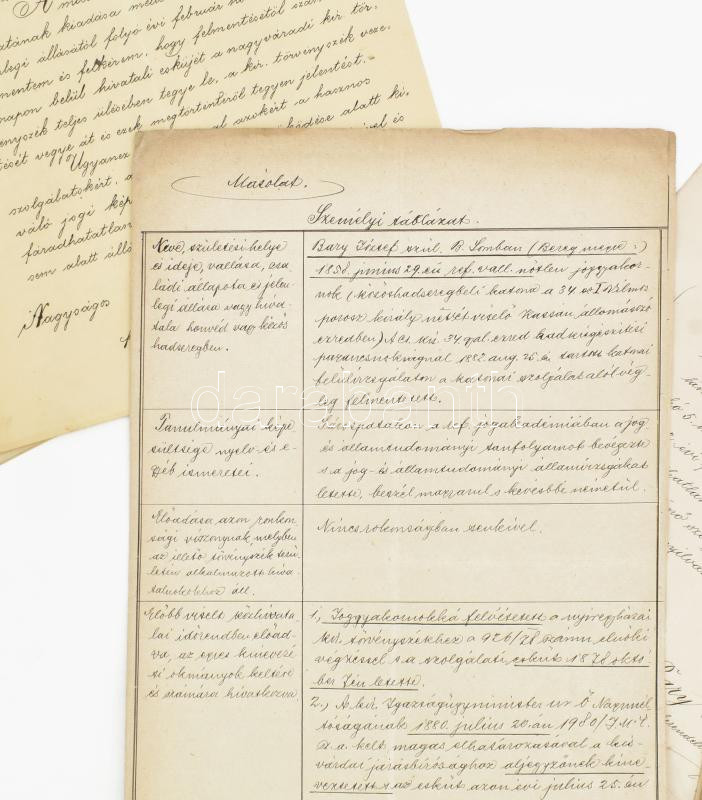 A
atának kiadása
legi állásától folyó évi február
mentem és felkérem, hogy felmentésétől
napon belül hivatali esküjét a nagyváradi kir. tör-
vényszék teljes ülésében tegye le, a kir. törvényszék veze-
tését vegye át és ezek megtörténtéről tegyen jelentést.
Ugyanez azokért a hasznos
szolgálatokért, működése alatt ki-
váló jogi
fáradhatatlan
sem alatt
Nagyságos
Másolat.
Személyi táblázat.
Neve, születési helye
és ideje, vallása, csa-
ládi állapota és jelen-
legi állása vagy hiva-
tala honvéd vagy közös
hadseregben.
Bary József szül. B. Somban (Bereg megye:)
1858. junius 29.én ref. vall. nőtlen joggyakor-
nok (közöshadseregbeli katona a 34. sz I Vilmos
porosz király nevét viselő Kassán állomásozó
ezredben) A cs. kir. 34 gyal. ezred hadkiegészitési
parancsnokságnál 1882 aug. 25. én tartott katonai
felülvizsgálaton a katonai szolgálat alól vég-
leg felmentetett.
Tanulmányai képe
sültsége nyelv- és e-
gyéb ismeretei.
Sárospatakon a ref. jogakadémiában a jog-
és államtudományi tanfolyamot bevégezte
s a jog- és államtudományi államvizsgákat
letette, beszél magyarul s kevésbbé németül.
Előadása azon rokon-
sági viszonynak melyben
az illető törvényszék terü-
letén alkalmazott hiva-
talnokokhoz áll.
Nincs rokonságban senkivel.
Előbb viselt közhivata-
lai időrendben előad-
va, az egyes kinevezé-
si okmányok keltére
és számára hivatkozva
1, Joggyakornokká felvétetett a nyiregyházai
kir. törvényszékhez a 926/78 számu elnöki
végzéssel s a szolgálati esküt 1878 októ-
ber 7én letette.
2., A kir. Igazságügyminister ur Ő Nagymél-
tóságának 1880. julius 20.án 1980/I.M.E.
sz. a. kelt magas elhatározásával a kis-
várdai járásbirósághoz aljegyzőnek kine-
veztetett s az esküt azon évi julius 25.én
darabanth